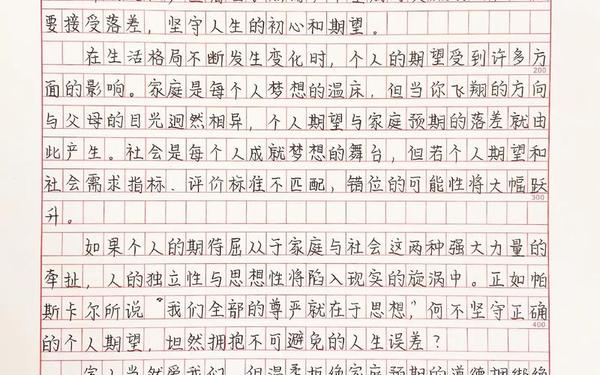 要接受落差，坚守人生的初心和期望。
在生活格局不断发生变化时，个人的期望受到许多方
200
面的影响。家庭是每个人梦想的温床，但当你飞翔的方向
与父母的目光迥然相异，个人期望与家庭预期的落差就由
此产生。社会是每个人成就梦想的舞台，但若个人期望和
社会需求指标、评价标准不匹配，错位的可能性将大幅跃
300
升。
如果个人的期待屈从于家庭与社会这两种强大力量的
牵扯，人的独立性与思想性将陷入现实的旋涡中。正如帕
斯卡尔所说“我们全部的尊严就在于思想，”何不坚守正确
400
的个人期望，坦然拥抱不可避免的人生误差？
家人当然爱我们，但温柔拒绝家庭预期的道德捆绑